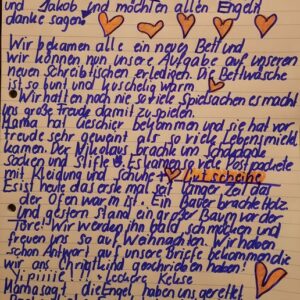 und Jakob und möchten allen Engeln
danke sagen!
Wir bekamen alle ein neues Bett und
wir können nun unsere Aufgabe auf unseren
neuen Schreibtischen erledigen. Die Bettwäsche
ist so bunt und kuschelig warm
Wir hatten noch nie so viele Spielsachen es macht
uns große Freude damit zu spielen.
Mama hat Geschirr bekommen und sie hat vor
freude sehr geweint das so viele Lebensmittel
kamen. Der Nikolaus brachte uns Schokolade
socken und Stifte. Es kamen so viele Postpackete
mit Kleidung und Schuhe + Gutscheine
Es ist heute das erste mal seit langer Zeit das
der Ofen warm ist. Ein Bauer brachte Holz
und gestern stand ein großer Baum vor der
Türe! Wir werden ihn bald schmücken und
freuen uns so auf Weihnachten. Wir haben
schon Antwort auf unsere Briefe bekommen die
wir ans Christkind geschrieben haben!
leckere Kekse
Mama sagt, die Engel haben uns gerettet